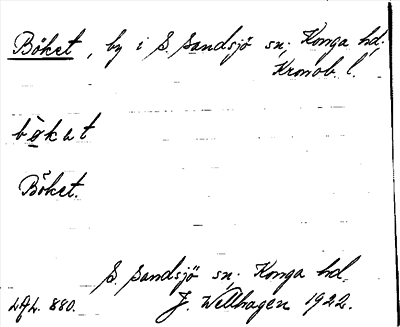 Böket, by i S. Sandsjö sn; Konga hd;
Kronob. l.
bökat
Böket.
S. Sandsjö sn; Konga hd.
LAL. 880. J. Wellhagen 1922.